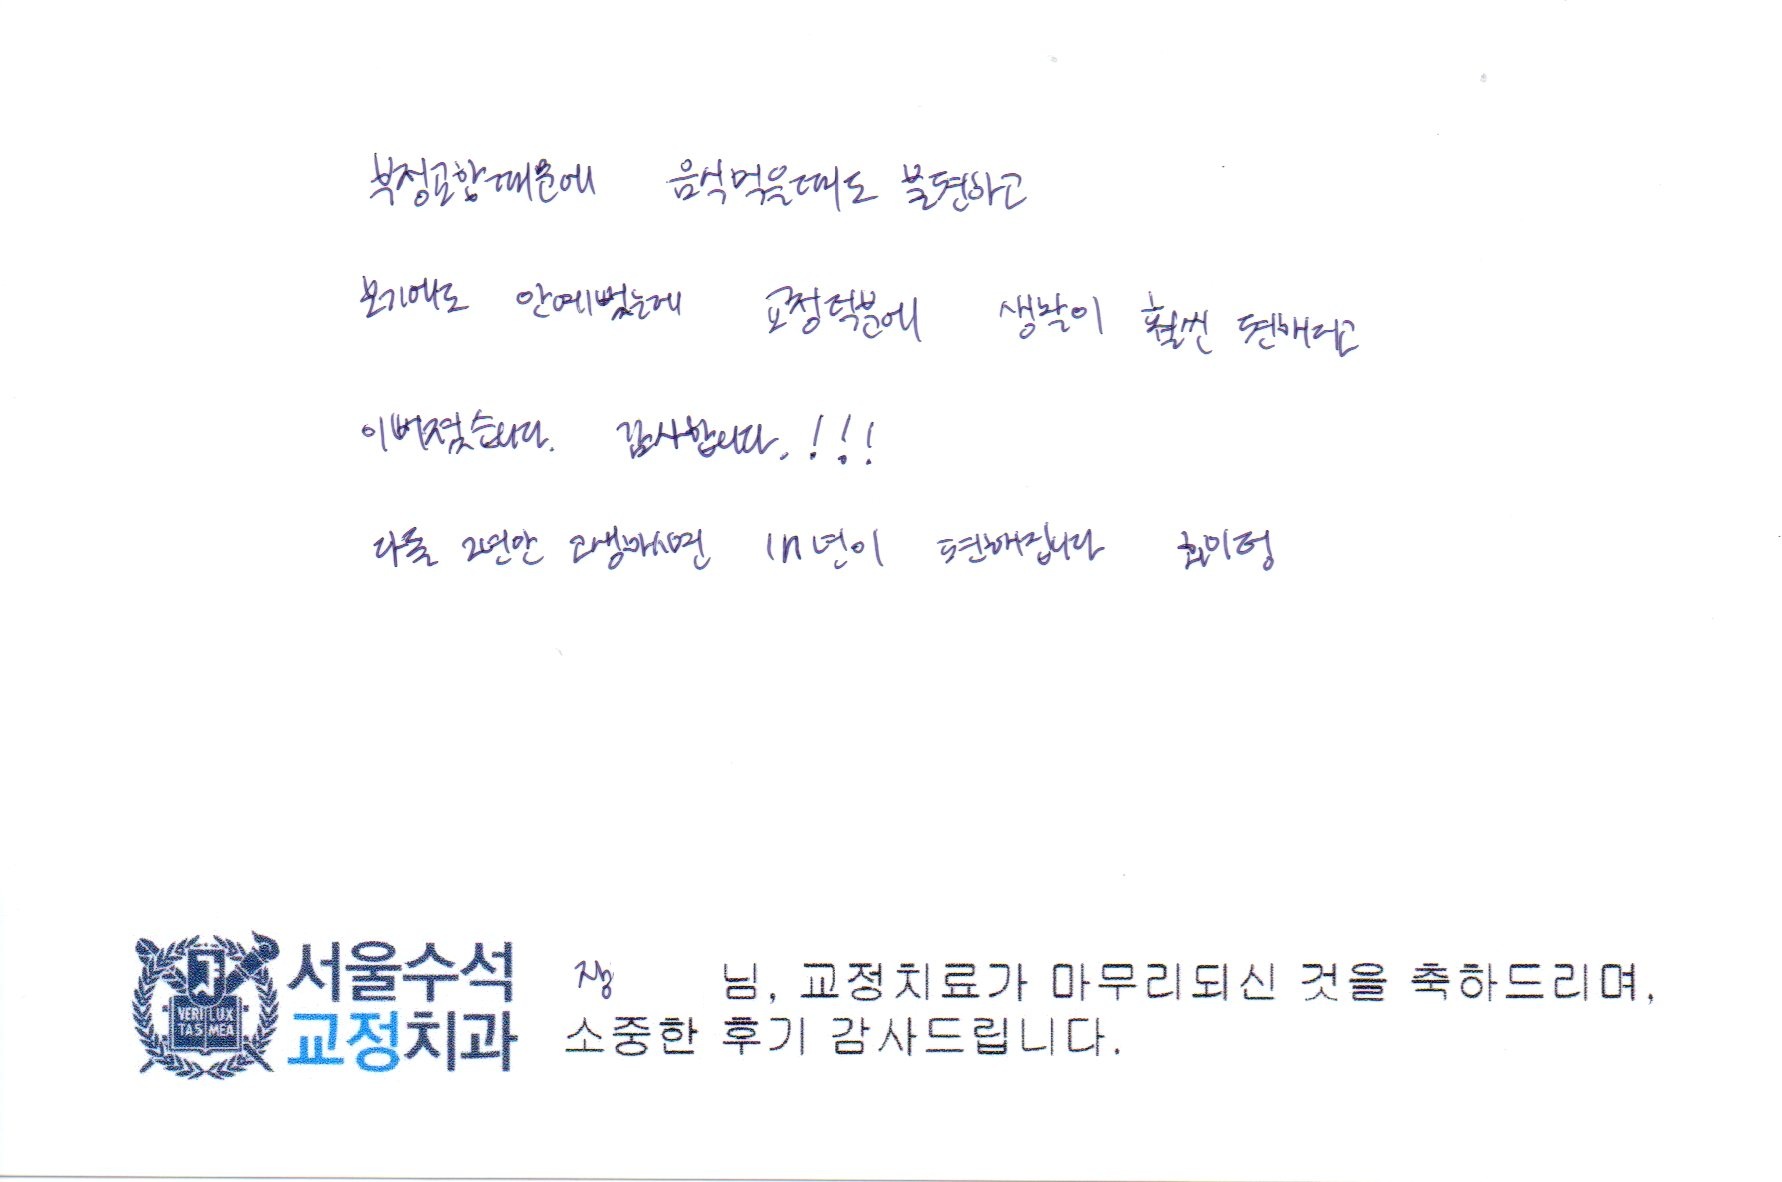 부정교합때문에 음식먹을때도 불편하고
보기에도 안예뻤는데 교정덕분에 생활이 훨씬 편해지고
이뻐졌습니다. 감사합니다.!!!
다들 2년만 고생하시면 년이 편해집니다 화이팅
VERI LUX TAS MEA
서울수석
교정치과
장 님, 교정치료가 마무리되신 것을 축하드리며,
소중한 후기 감사드립니다.